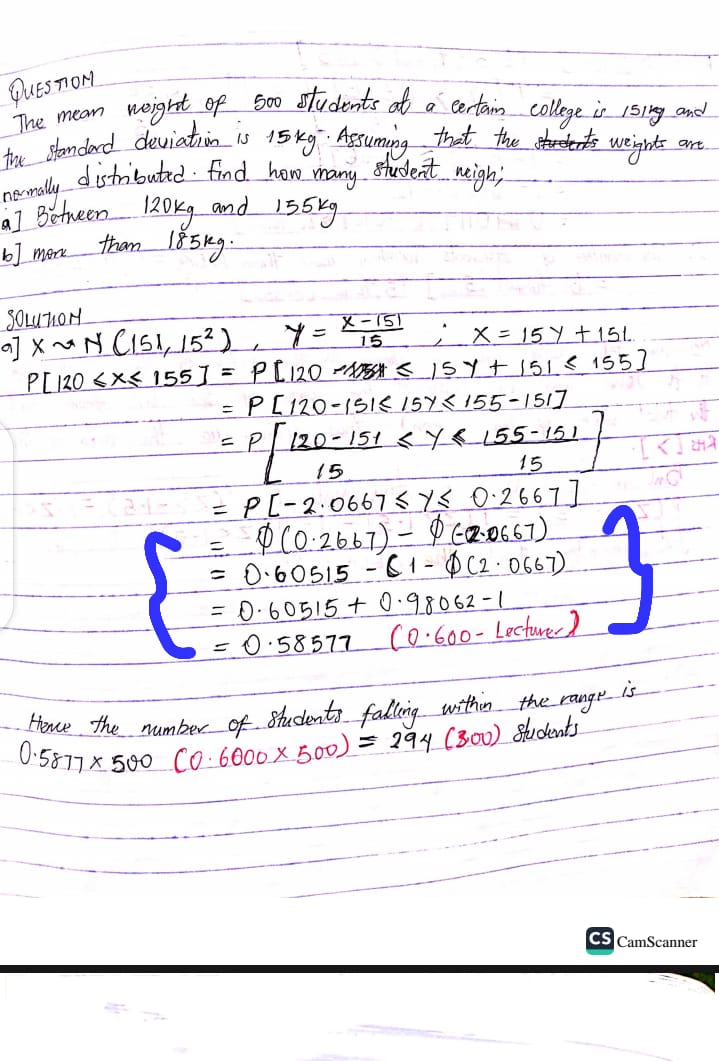 QUESTION
The mean weight of 500 students at a certain college is 151kg and
the standard deviation is 15kg. Assuming that the students weights are
normally distributed. Find how many student weigh;
a] Between 120kg and 155kg
b] more than 185kg.
SOLUTION
a] X ~ N (151, 15²), Y = X - 151 / 15 ; X = 15Y + 151.
P[120 ≤ X ≤ 155] = P[120 ≤ 15Y + 151 ≤ 155]
= P[120-151 ≤ 15Y ≤ 155-151]
= P[120-151 / 15 ≤ Y ≤ 155-151 / 15]
= P[-2.0667 ≤ Y ≤ 0.2667]
= Φ(0.2667) - Φ(-2.0667)
= 0.60515 - (1 - Φ(2.0667)
= 0.60515 + 0.98062 - 1
= 0.58577 (0.600 - Lecturer)
Hence the number of students falling within the range is
0.5877 x 500 (0.6000 x 500) = 294 (300) students
CS CamScanner